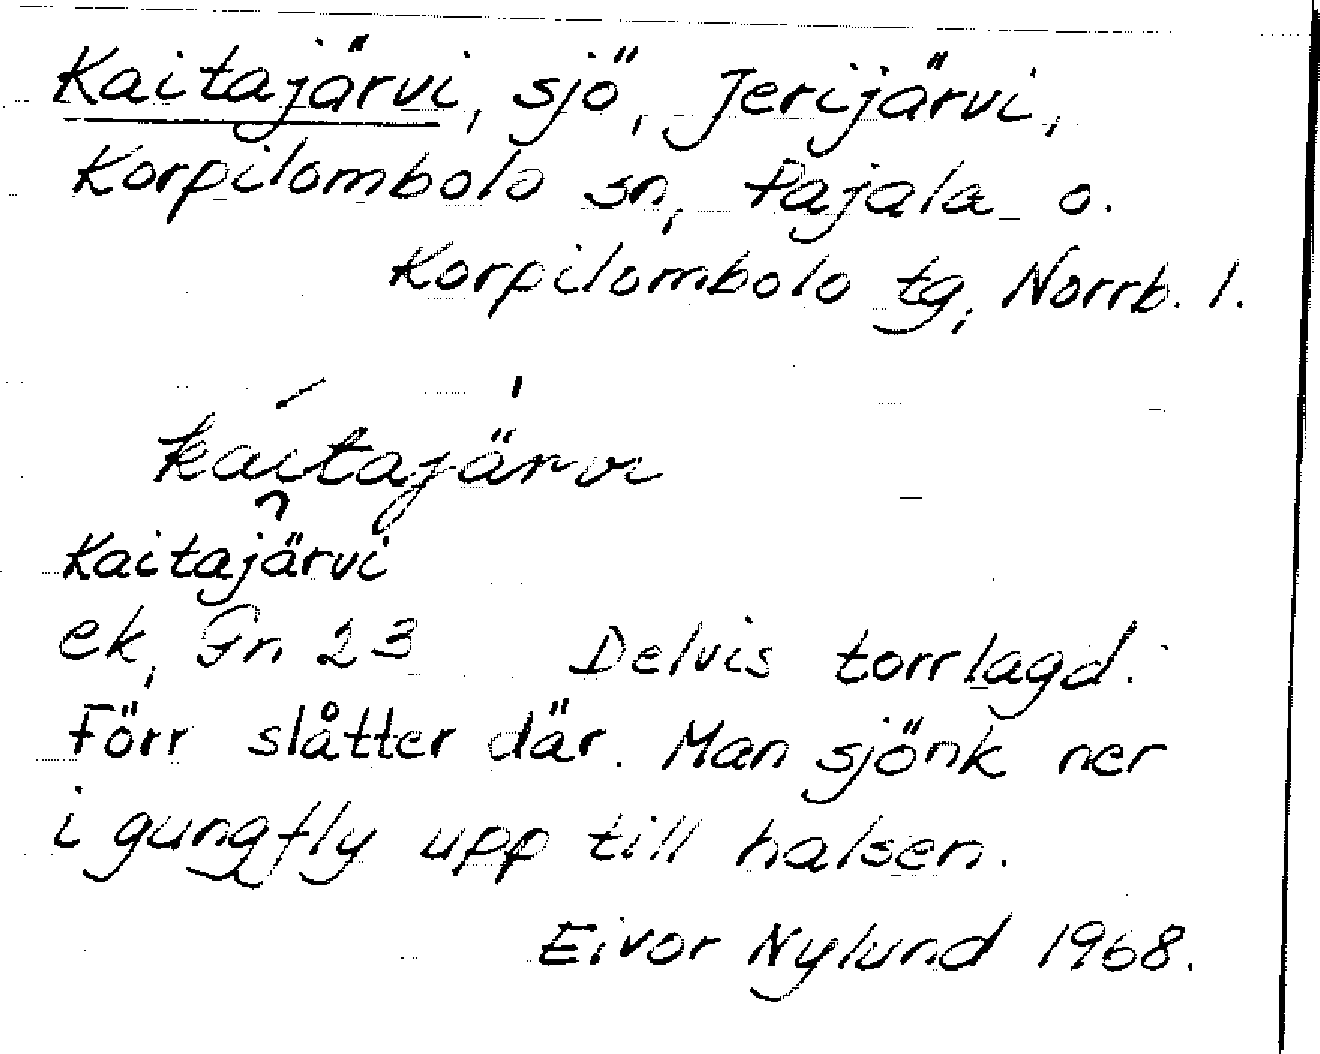 Kaitajärvi, sjö, Jerijärvi,
Korpilombolo sn, Pajala o.
Korpilombolo tg, Norrb. l.
kaitajärvi
Kaitajärvi
ek, Gn 23 Delvis torrlagd.
Förr slåtter där. Man sjönk ner
i gungfly upp till halsen.
Eivor Nylund 1968.